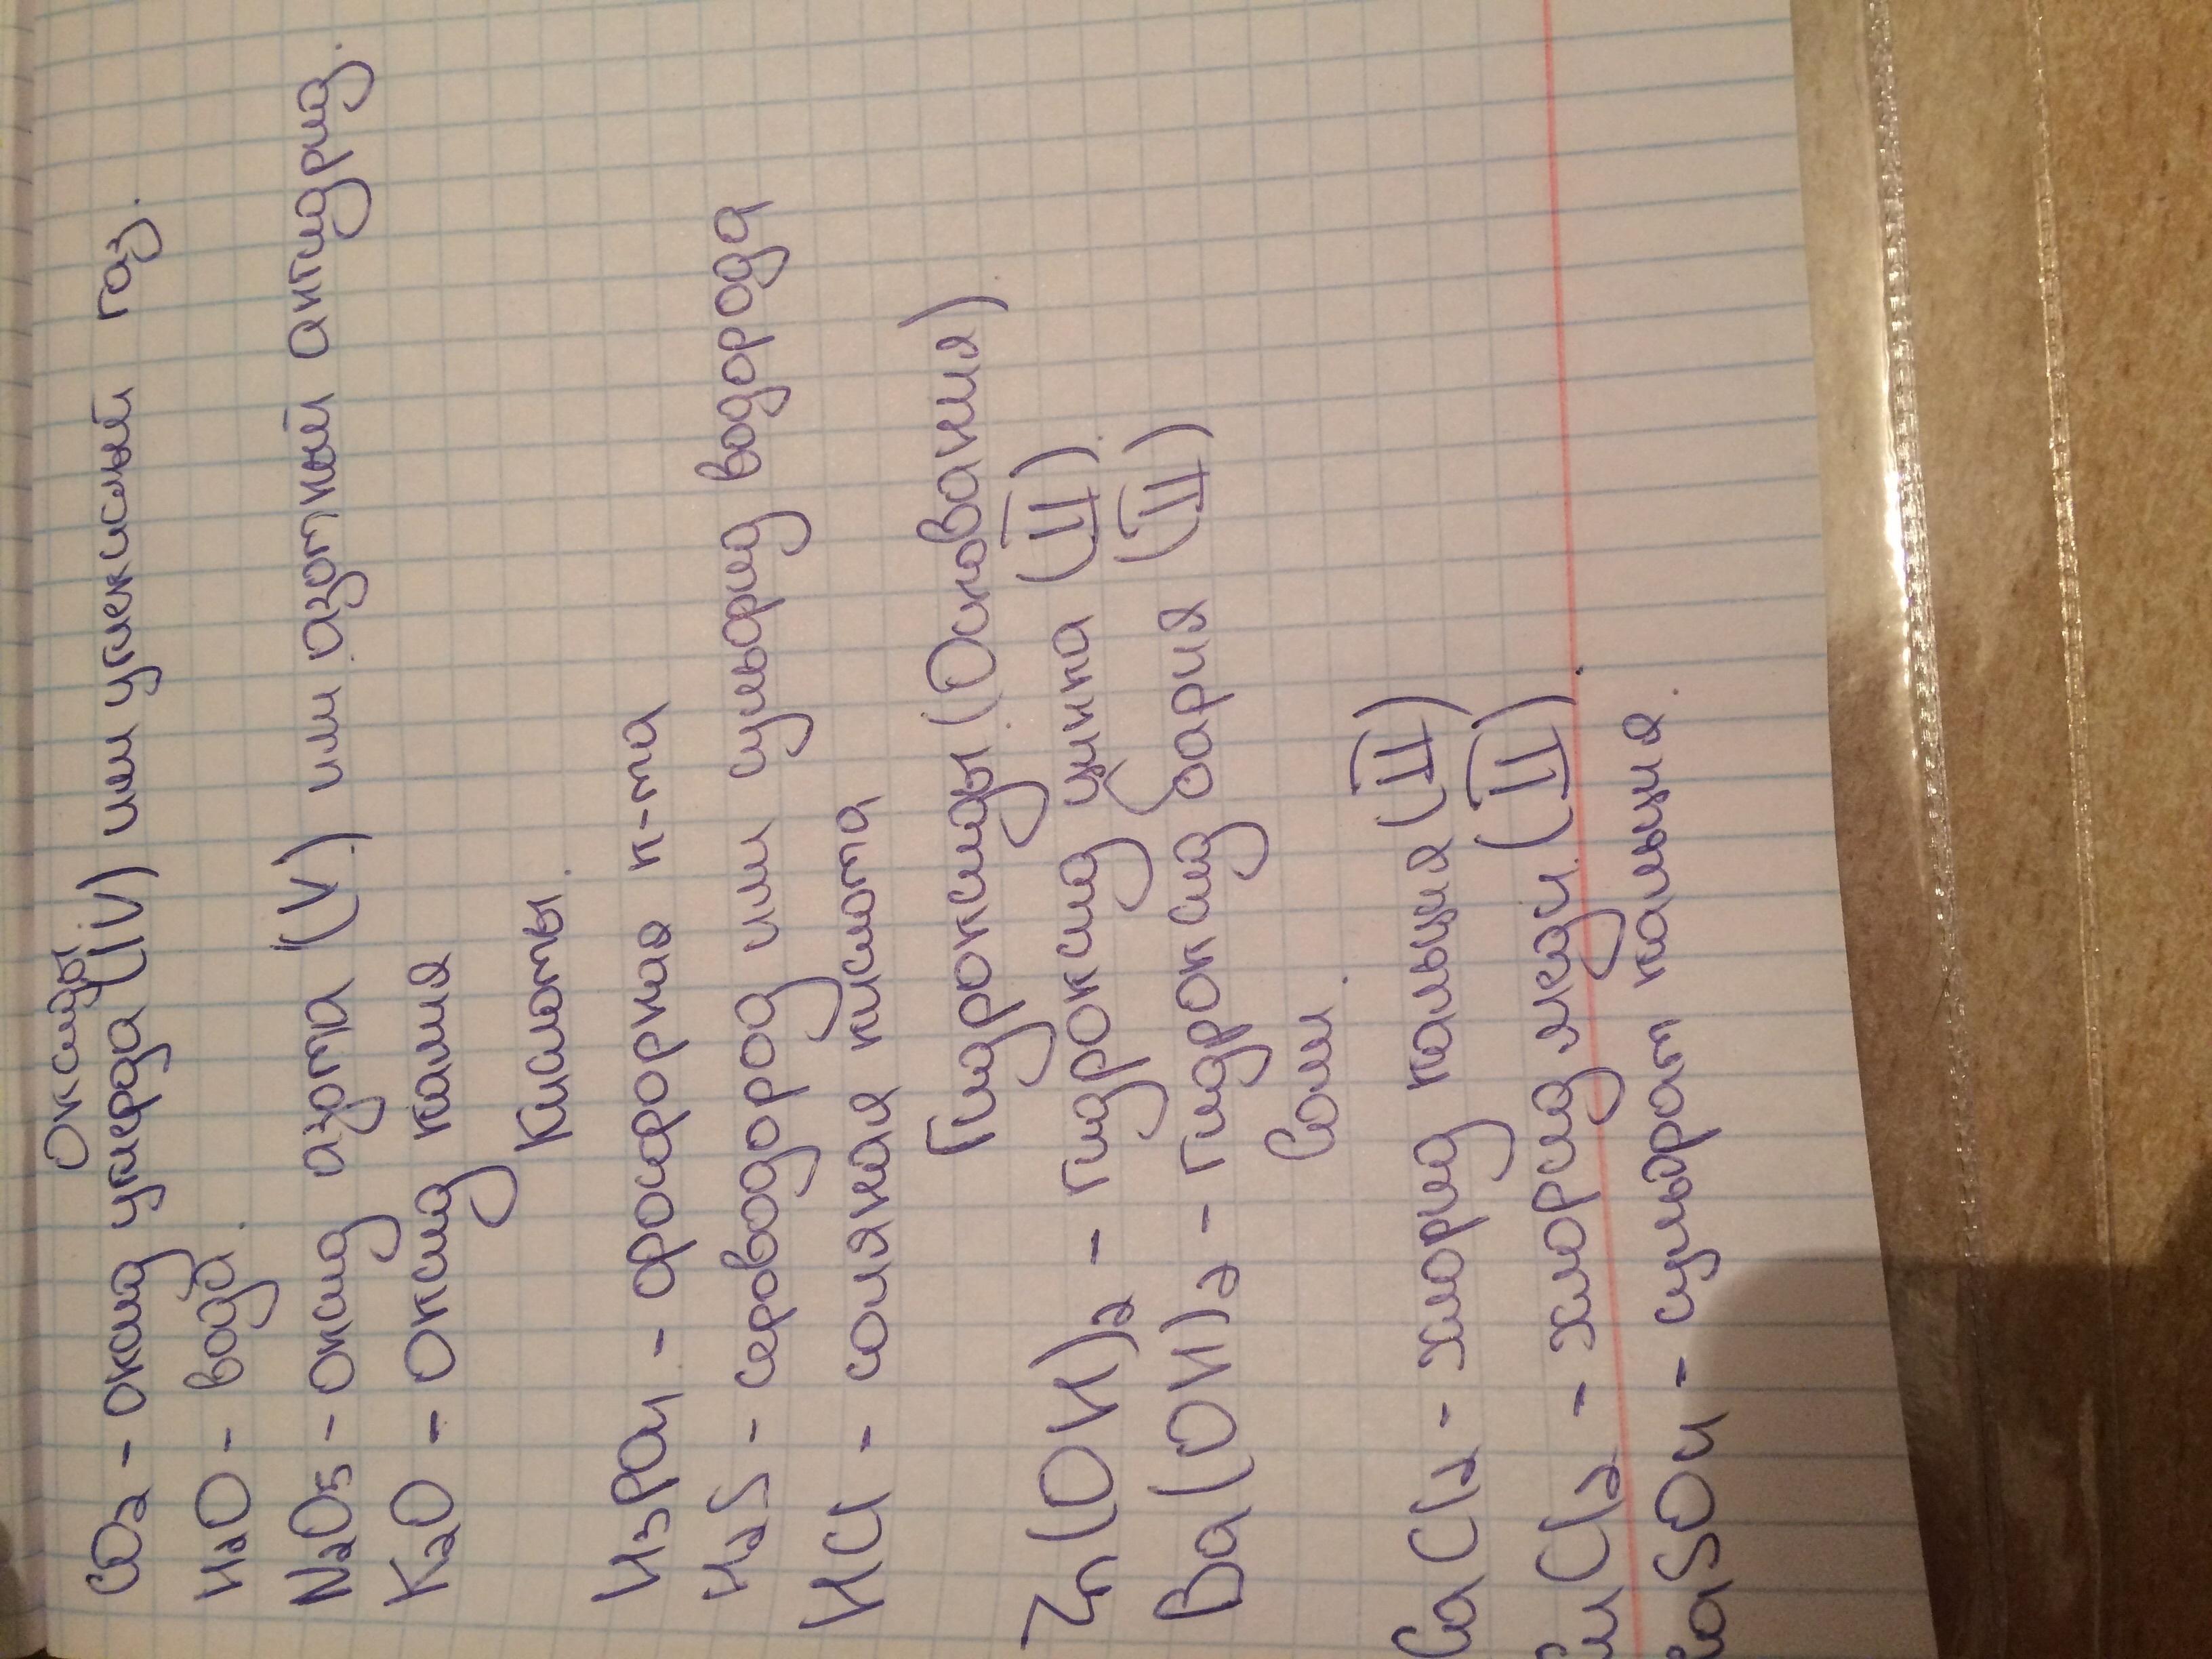 Оксиды
CO2 - оксид углерода (IV) или углекислый газ.
H2O - вода.
N2O5 - оксид азота (V) или азотный ангидрид.
K2O - Оксид калия
Кислоты.
H3PO4 - фосфорная к-та
H2S - сероводород или сульфид водорода
HCl - соляная кислота
Гидроксиды (Основания)
Zn(OH)2 - гидроксид цинка (II)
Ba(OH)2 - гидроксид бария (II)
Соли.
CaCl2 - хлорид кальция (II)
CuCl2 - хлорид меди (II).
CaSO4 - сульфат кальция.